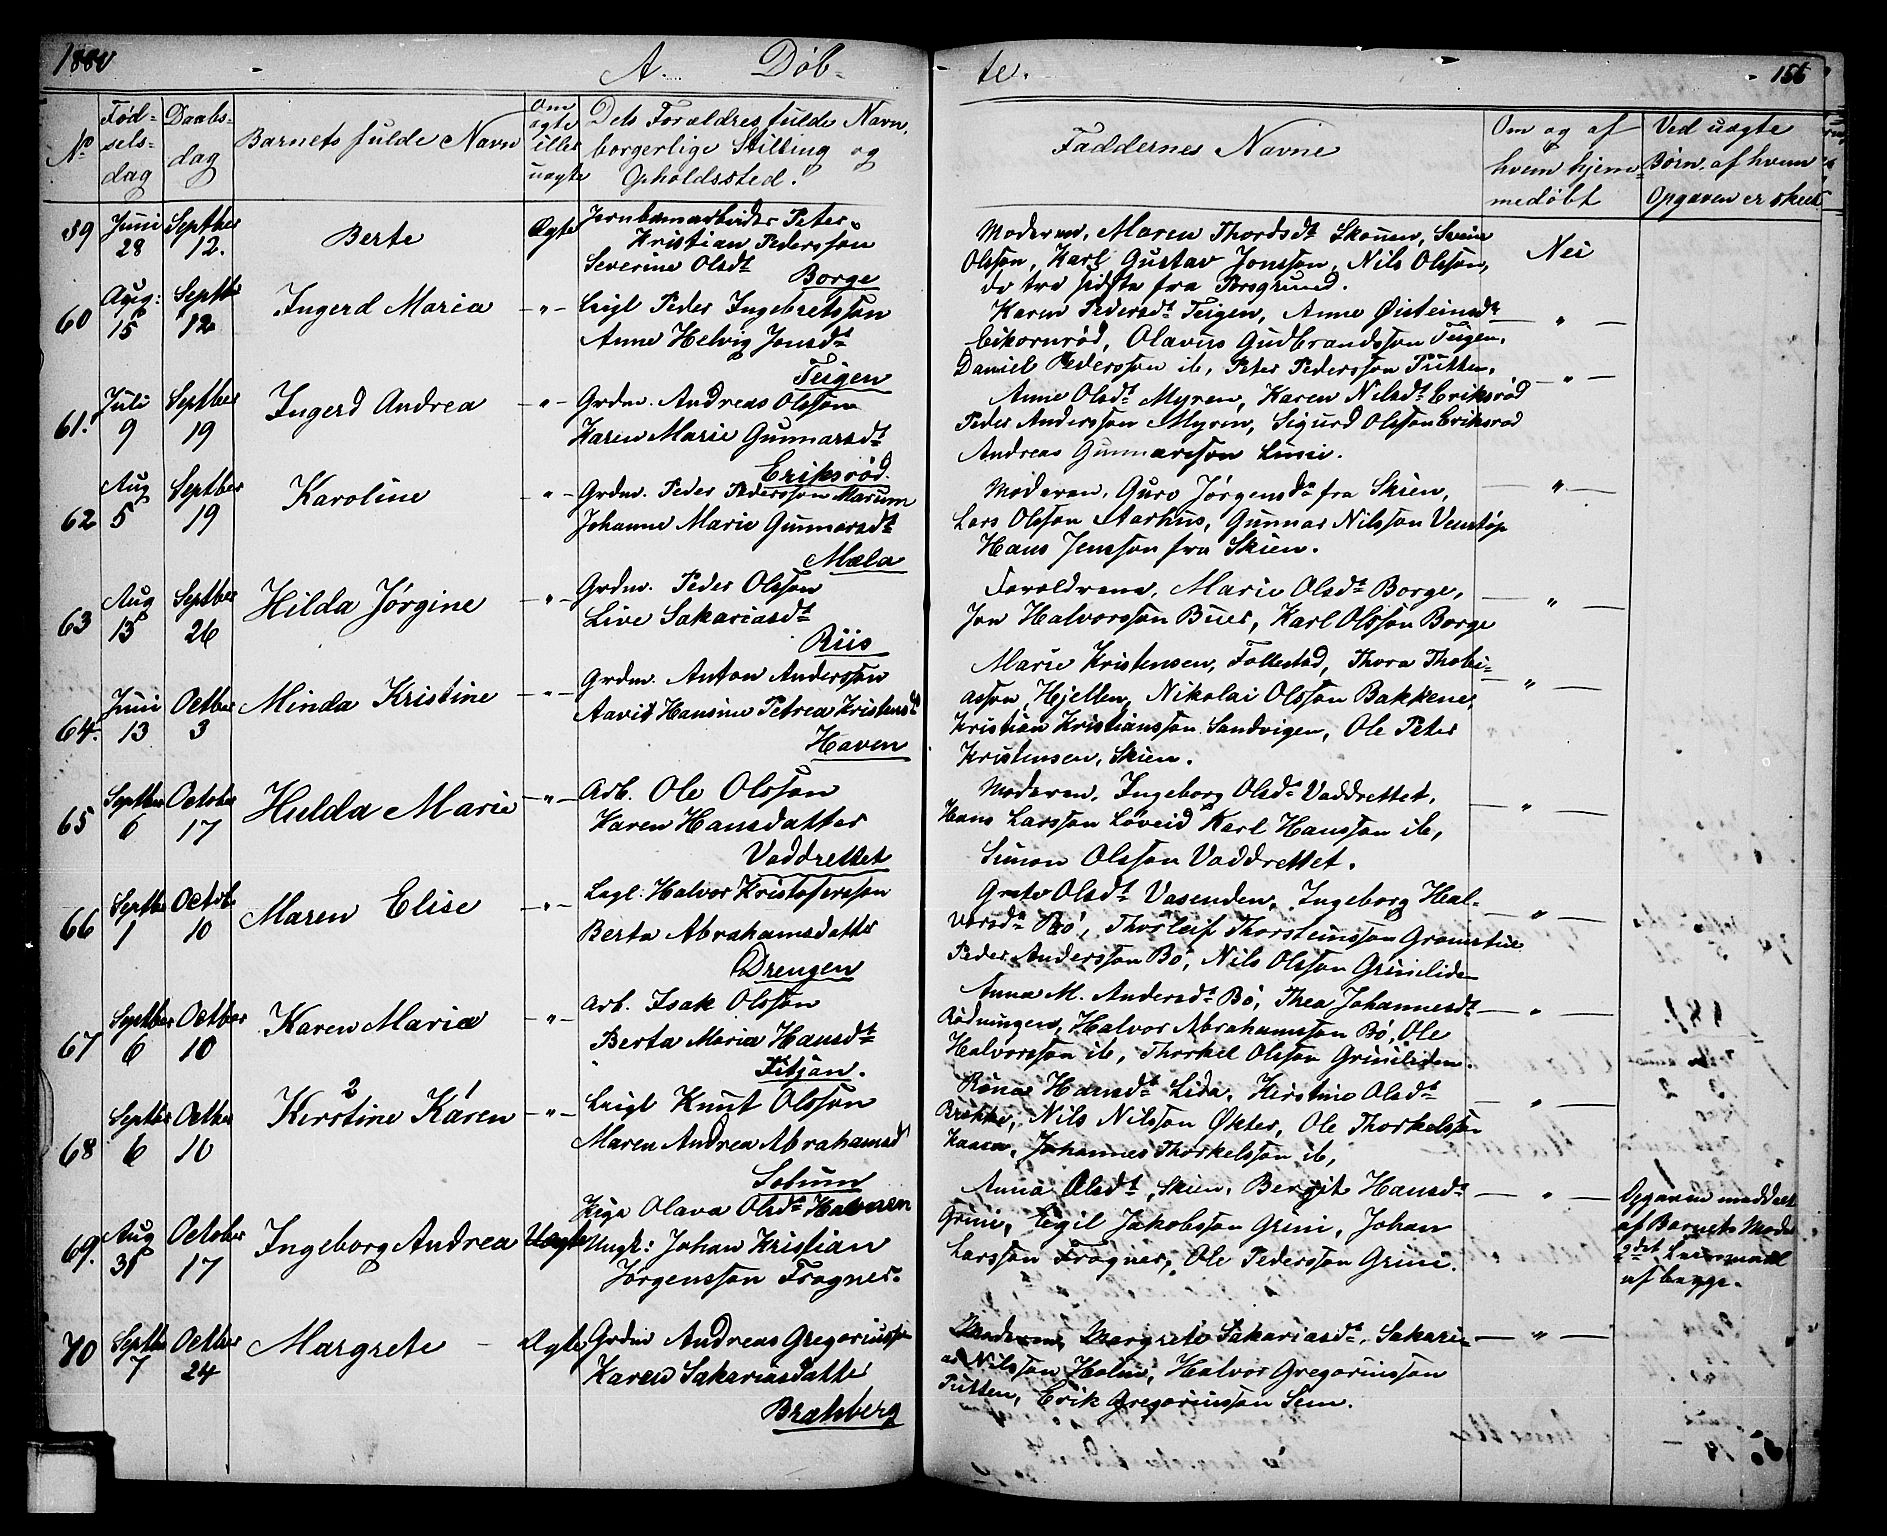 1880 A. Døb- te. 156
No Fød- sels- dag Daabs- dag Barnets fulde Navn Om ægte eller uægte Dets Forældres fulde Navn, borgerlige Stilling og Opholdssted. Faddernes Navne Om og af hvem hjem- medøbt Ved uægte Børn, af hvem Opgaven er skeet
59 Juni 28 Septber 12. Berte Ægte Jernbanearbeider Peter
Kristian Pedersson
Severine Olsdt
Borge
Moderen, Maren Thordsdt Skouen, Svein
Olsson, Karl Gustav Jonsson, Nils Olsson,
de tre sidste fra Porsgrund.
Nei
60 Aug: 15 Septbr 12 Ingerd Maria -"- Leigl Peder Ingebretsson
Anne Helvig Jonsdt
Teigen
Karen Pedersdt Teigen, Anne Øisteinsdt
Eikornrød, Olavus Gudbrandsson Teigen,
Daniel Pedersson ib, Peter Pedersson Putten.
— " —
61. Juli 9 Septber 19 Ingerd Andrea -"- Grdm. Andreas Olsson
Karen Marie Gunnarsdt
Eriksrød.
Anne Olsdt Myren, Karen Nilsdt Eriksrød
Peder Andersson Myren, Sigurd Olsson Eriksrød
Andreas Gunnarsson Linie.
— " —
62 Aug 5 Septber 19 Karoline -"- Grdm. Peder Pedersson Marum
Johanne Marie Gunnarsdt
Mæla
Moderen, Guro Jørgensdt fra Skien,
Lars Olsson Aarhus, Gunnar Nilsson Venstøp
Hans Jensson fra Skien.
— " —
63 Aug 13 Septbr 26 Hilda Jørgine -"- Grdm. Peder Olsson
Live Sakariasdt
Riis
Forældrene, Marie Olsdt Borge,
Jon Halvorsson Buer, Karl Olsson Borge
— " —
64. Juni 13 Octber 3 Minda Kristine -"- Grdm. Anton Andersson
Aavit Hansine Petrea Kristensdt
Haven
Marie Kristensen, Follestad, Thora Thobi-
asson, Hjellen, Nikolai Olsson Bakkene,
Kristian Kristiansson Sandvigen, Ole Peter
Kristensen, Skien.
— " —
65 Septber 6 October 17 Hulda Marie -"- Arb. Ole Olsson
Karen Hansdatter
Vaddrettet
Moderen, Ingeborg Olsdt Vaddrettet,
Hans Larsson Løveid Karl Hansson ib,
Simon Olsson Vaddrettet.
— " —
66 Septbr 1 Octob. 10 Maren Elise -"- Legl. Halvor Kristofersson
Berta Abrahamsdatter
Drengen
Grete Olsdt Vasenden, Ingeborg Hal-
vorsdt Bø, Thorleif Thorsteinsson
Peder Andersson Bø, Nils Olsson Grinilide
— " —
67 Septber 6 Octber 10 Karen Maria -"- Arb. Isak Olsson
Berta Maria Hansdt
Fitjan.
Anna M. Andersdt Bø, Thea Johannesdt
Rødningen, Halvor Abrahamsson Bø, Ole
Halvorsson ib, Thorkel Olsson Griniliden.
— " —
68 Septbr 6 Octber 10 2 Kirstine 1 Karen -"- Leigl Knut Olsson
Maren Andrea Abrahamsd
Solum
Hansdt Lida, Kerstine Olsdt
Brække, Nils Nilsson Økter, Ole Thorkelsson
Haaen, Johannes Thorkelsson ib,
— " —
69. Aug 31 October 17 Ingeborg Andrea Uægte Pige Olava Olsdt Halvøen
Ungk: Johan Kristian
Jørgensson Frogner.
Anna Olsdt, Skien, Bergit Hansdt
Grini, Egil Jakobsson Grini, Johan
Larsson Frogner, Ole Pedersson Grini.
— " —
Opgaven meddelt
af Barnets Moder
gdst Leiermaal
af begge.
70 Septbr 7 Octber 24 Margrete Ægte Grdm Andreas Gregoriusson
Karen Sakariasdatter
Brækberg
Moderen, Margrete Sakariasdt, Sakari-
as Nilsson Holm, Halvor Gregoriusson
Putten, Erik Gregoriusson Sem.
— " —